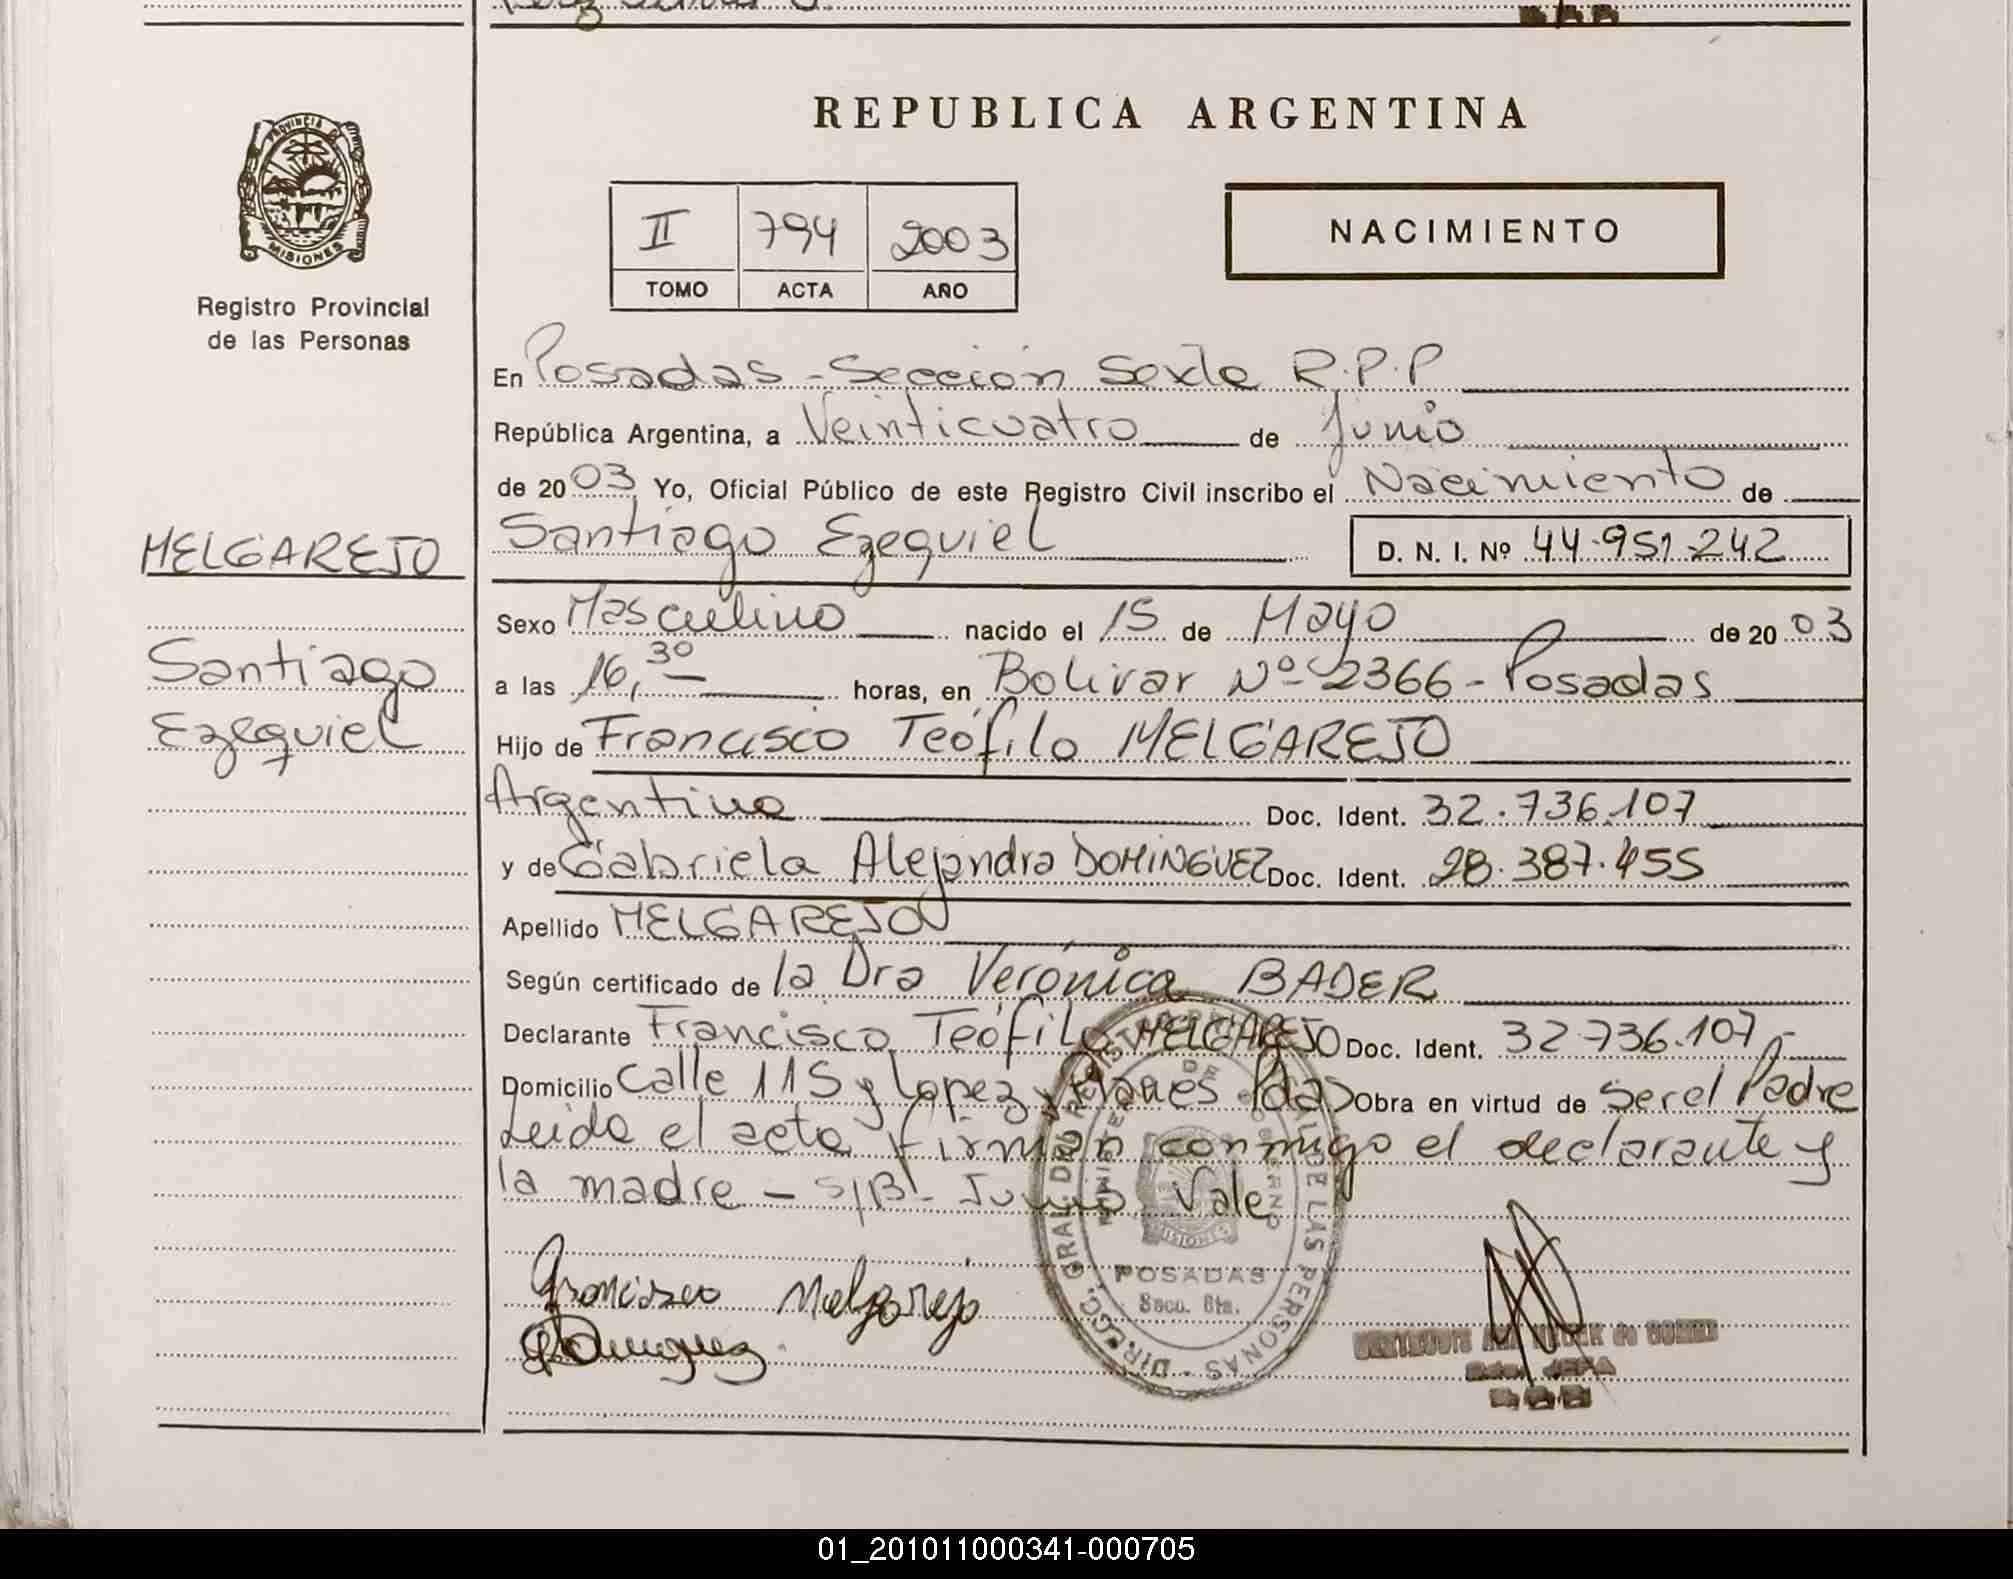 REPUBLICA ARGENTINA
PROVINCIA DE
MISIONES
Registro Provincial
de las Personas
II 794 2003
TOMO ACTA AÑO
NACIMIENTO
En Posadas - Sección Sexta R.P.P
República Argentina, a Veinticuatro de Junio
de 2003 Yo, Oficial Público de este Registro Civil inscribo el Nacimiento de
MELGAREJO
Santiago
Ezequiel
Santiago Ezequiel D. N. I. Nº 44.951.242
Sexo Masculino nacido el 15 de Mayo de 2003
a las 16,30 horas, en Bolivar Nº 2366 - Posadas
Hijo de Francisco Teófilo MELGAREJO
Argentino Doc. Ident. 32.736.107
y de Gabriela Alejandra DOMINGUEZ Doc. Ident. 28.387.455
Apellido MELGAREJO
Según certificado de la Dra Verónica BADER
Declarante Francisco Teófilo MELGAREJO Doc. Ident. 32.736.107.-
Domicilio Calle 115 y Lopez y Planes Pdas Obra en virtud de Ser el Padre
Leida el acta firman conmigo el declarante y
la madre - S/B - Junio Vale
Francisco Melgarejo
Dominguez
DIRECC. GRAL. DEL REGISTRO DE LAS PERSONAS
MINISTERIO DE GOBIERNO
MISIONES
POSADAS
Secc. 6ta.
JEFA
01_201011000341-000705